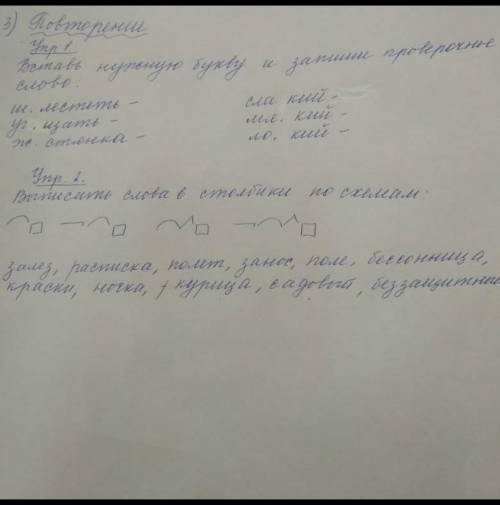 3) Повторение
Упр 1
Вставь нужную букву и запиши проверочное
слово.
ш. лестеть – сла. кий –
уг. щать – мя. кий –
ж. стянка – ло. кий –
Упр. 2.
Выписать слова в столбики по схемам:
залез, расписка, полет, занос, поле, бессонница,
краски, ночка, курица, садовый, беззащитный